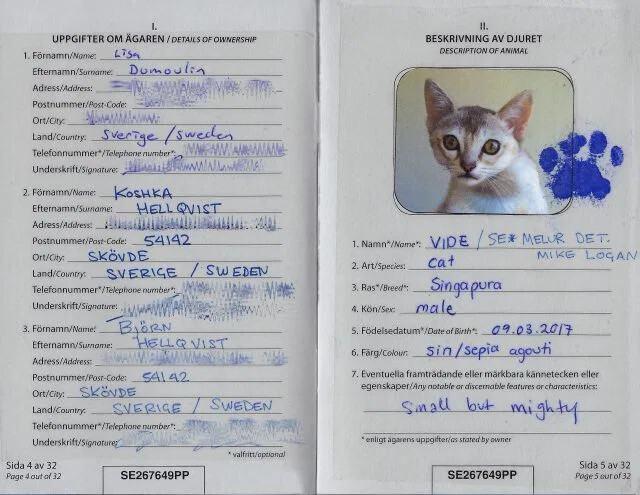 I.
UPPGIFTER OM ÄGAREN / DETAILS OF OWNERSHIP
1. Förnamn/Name: Lisa
Efternamn/Surname: Dumoulin
Adress/Address:
Postnummer/Post-Code:
Ort/City:
Land/Country: Sverige / Sweden
Telefonnummer*/Telephone number*:
Underskrift/Signature:
2. Förnamn/Name: KOSHKA
Efternamn/Surname: HELLQVIST
Adress/Address:
Postnummer/Post-Code: 54142
Ort/City: SKÖVDE
Land/Country: SVERIGE / SWEDEN
Telefonnummer*/Telephone number*:
Underskrift/Signature:
3. Förnamn/Name: BJÖRN
Efternamn/Surname: HELLQVIST
Adress/Address:
Postnummer/Post-Code: 54142
Ort/City: SKÖVDE
Land/Country: SVERIGE / SWEDEN
Telefonnummer*/Telephone number*:
Underskrift/Signature:
* valfritt/optional
Sida 4 av 32
Page 4 out of 32
SE267649PP
II.
BESKRIVNING AV DJURET
DESCRIPTION OF ANIMAL
1. Namn*/Name*: VIDE / SE* MELUR DET.
MIKE LOGAN
2. Art/Species: cat
3. Ras*/Breed*: Singapura
4. Kön/Sex: male
5. Födelsedatum*/Date of Birth*: 09.03.2017
6. Färg/Colour: sin/sepia agouti
7. Eventuella framträdande eller märkbara kännetecken eller
egenskaper/Any notable or discernable features or characteristics:
Small but mighty
* enligt ägarens uppgifter/as stated by owner
SE267649PP
Sida 5 av 32
Page 5 out of 32